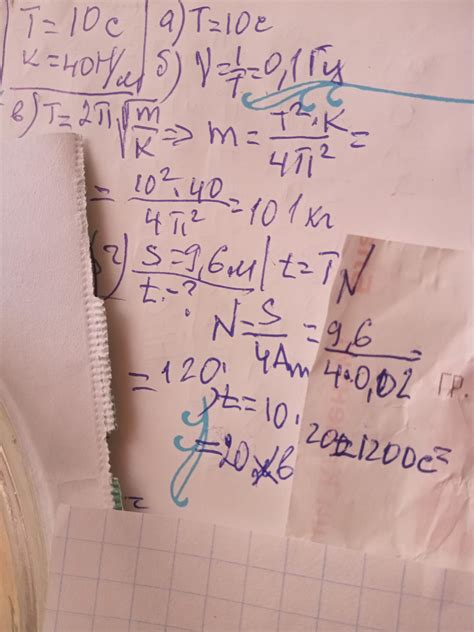 T = 10 c
K = 40 H/м
а) T = 10 c
б) ν = 1/T = 0,1 Гц
в) T = 2π √(m/K) => m = T²·K / 4π² =
= 10²·40 / 4π² = 101 кг
г) S = 9,6 м | t = T N
t - ?
N = S / 4Am = 9,6 / 4·0,02 =
= 120.
ГР.
t = 10.
120 = 1200 c =
= 20